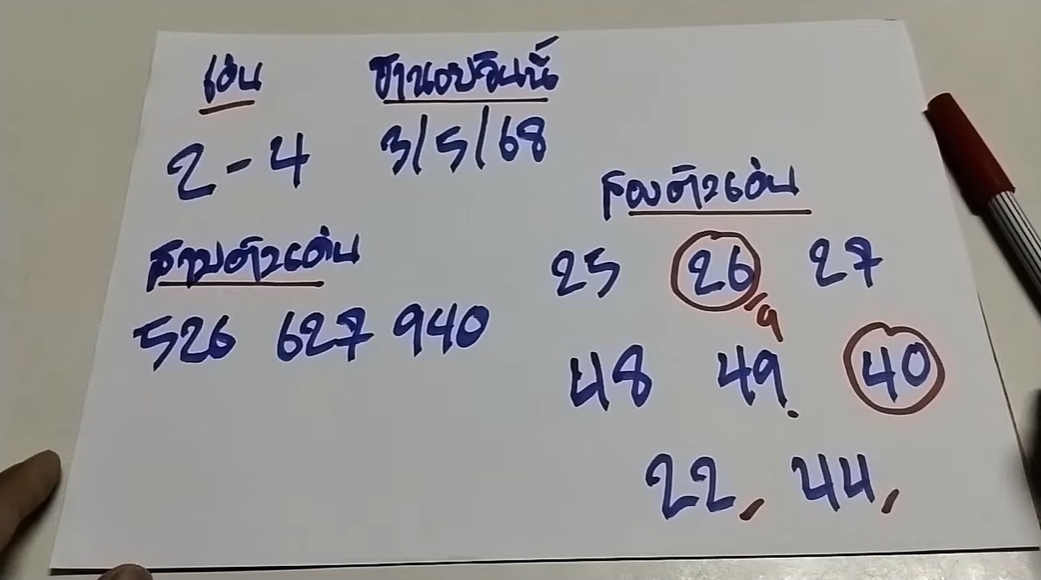 เด่น
ฮานอยวันนี้
2-4
3/5/68
สามตัวเด่น
526 627 940
สองตัวเด่น
25 26 27
/9
48 49. 40
22, 44,